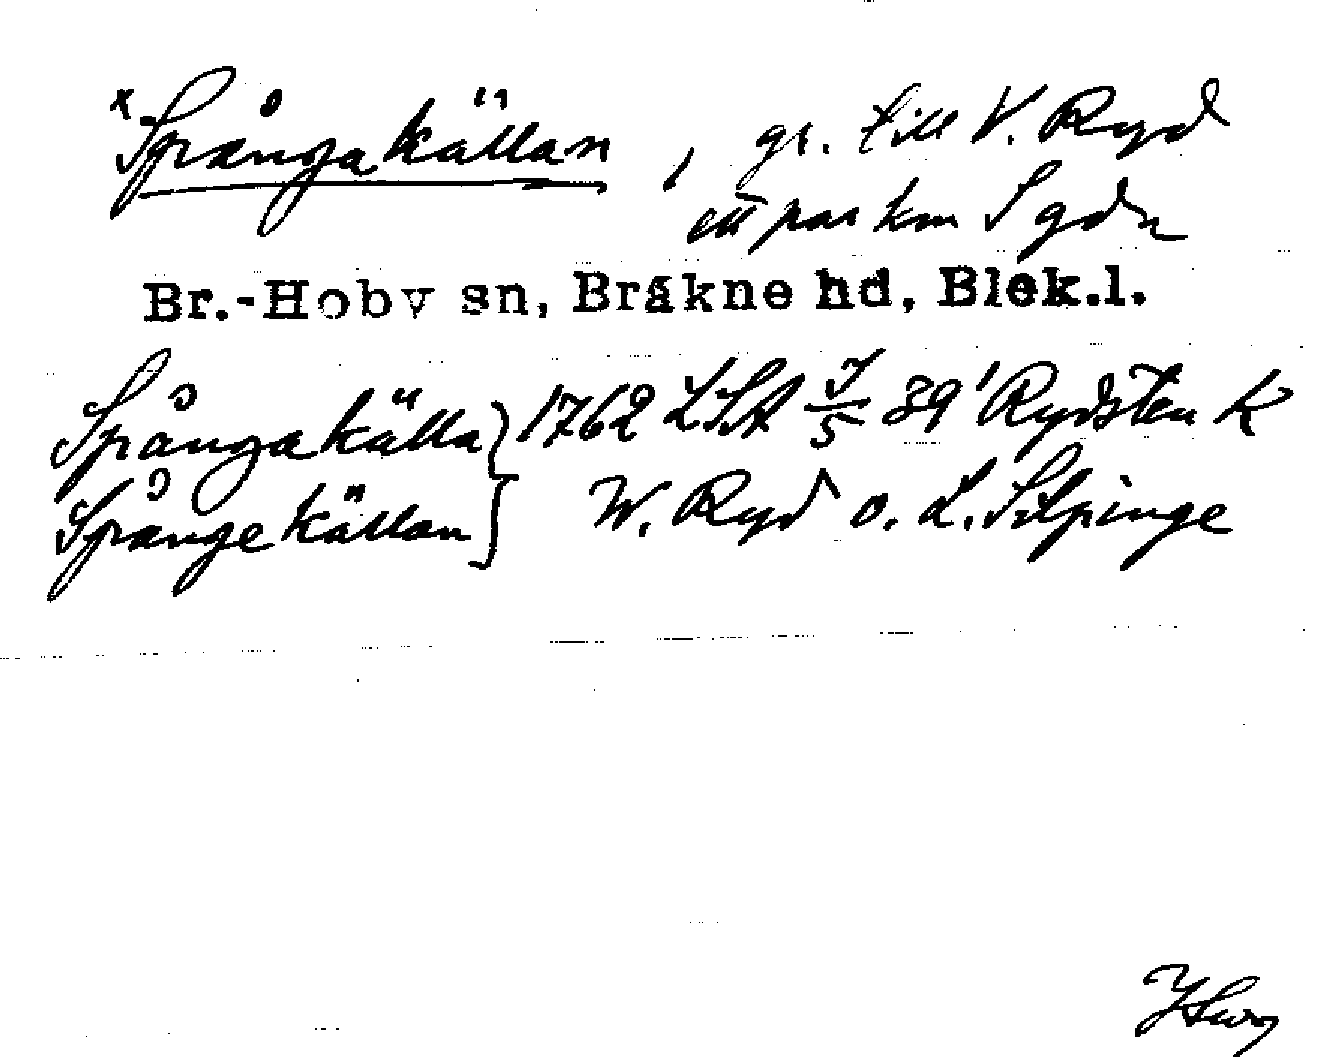 ×Spångakällan, gr. till V. Ryd
ett par km S gdn
Br.-Hoby sn, Bräkne hd, Blek.l.
Spångakälla } 1762 LSA J/5 39' Rydsten K
Spångekällan } W. Ryd o. L. Silpinge